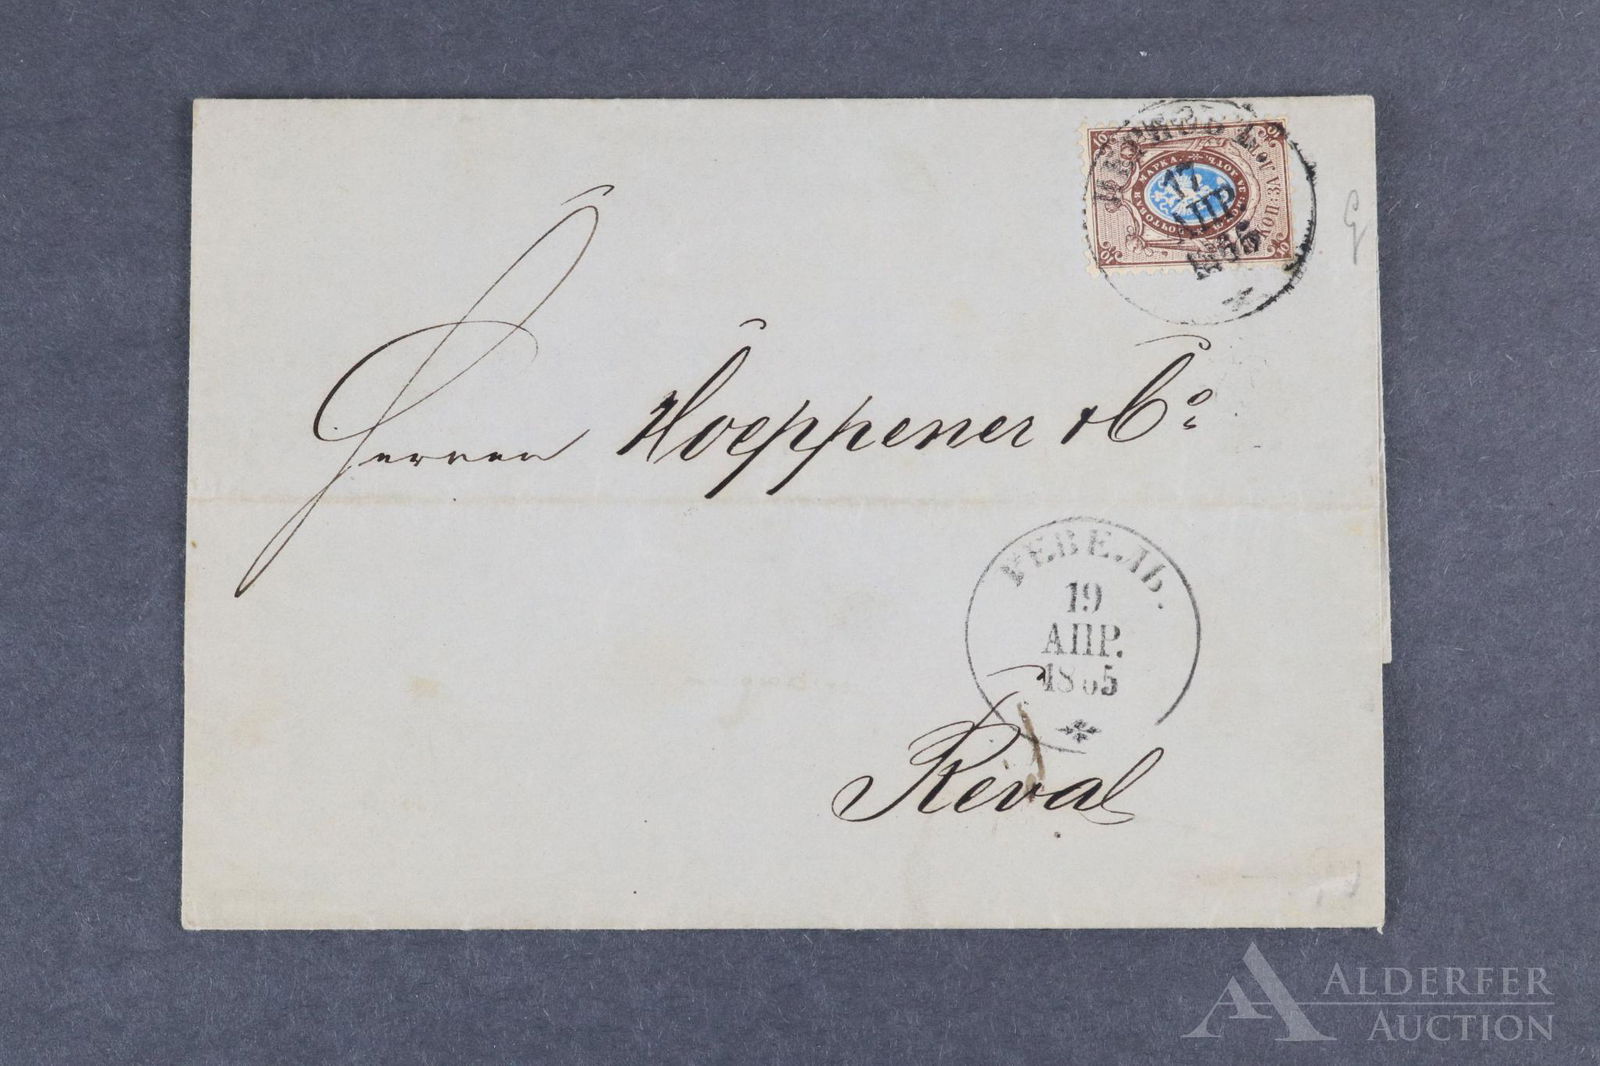 17
АПР.
1865
10
10
МАРКА
Herren Hoeppener & Co
РЕВЕЛЬ.
19
АПР.
1865
Reval
ALDERFER
AUCTION